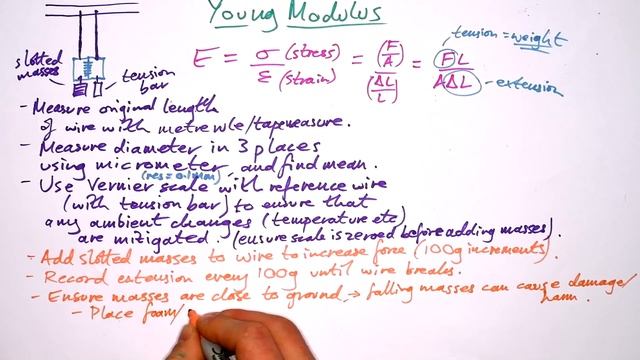 Young Modulus
slotted masses
tension bar
E = σ (stress) / ε (strain) = (F/A) / (ΔL/L) = FL / AΔL
tension = weight
- extension
- Measure original length
of wire with metre rule/tapemeasure.
- Measure diameter in 3 places
using micrometer and find mean.
(res = 0.01mm)
- Use Vernier scale with reference wire
(with tension bar) to ensure that
any ambient changes (temperature etc)
are mitigated. (ensure scale is zeroed before adding masses).
- Add slotted masses to wire to increase force (100g increments).
- Record extension every 100g until wire breaks.
- Ensure masses are close to ground → falling masses can cause damage/
harm.
- Place foam/